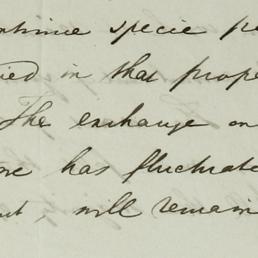 ntinue specie pa
ied in that prope
The exchange on
has fluctuate
ut, will remain